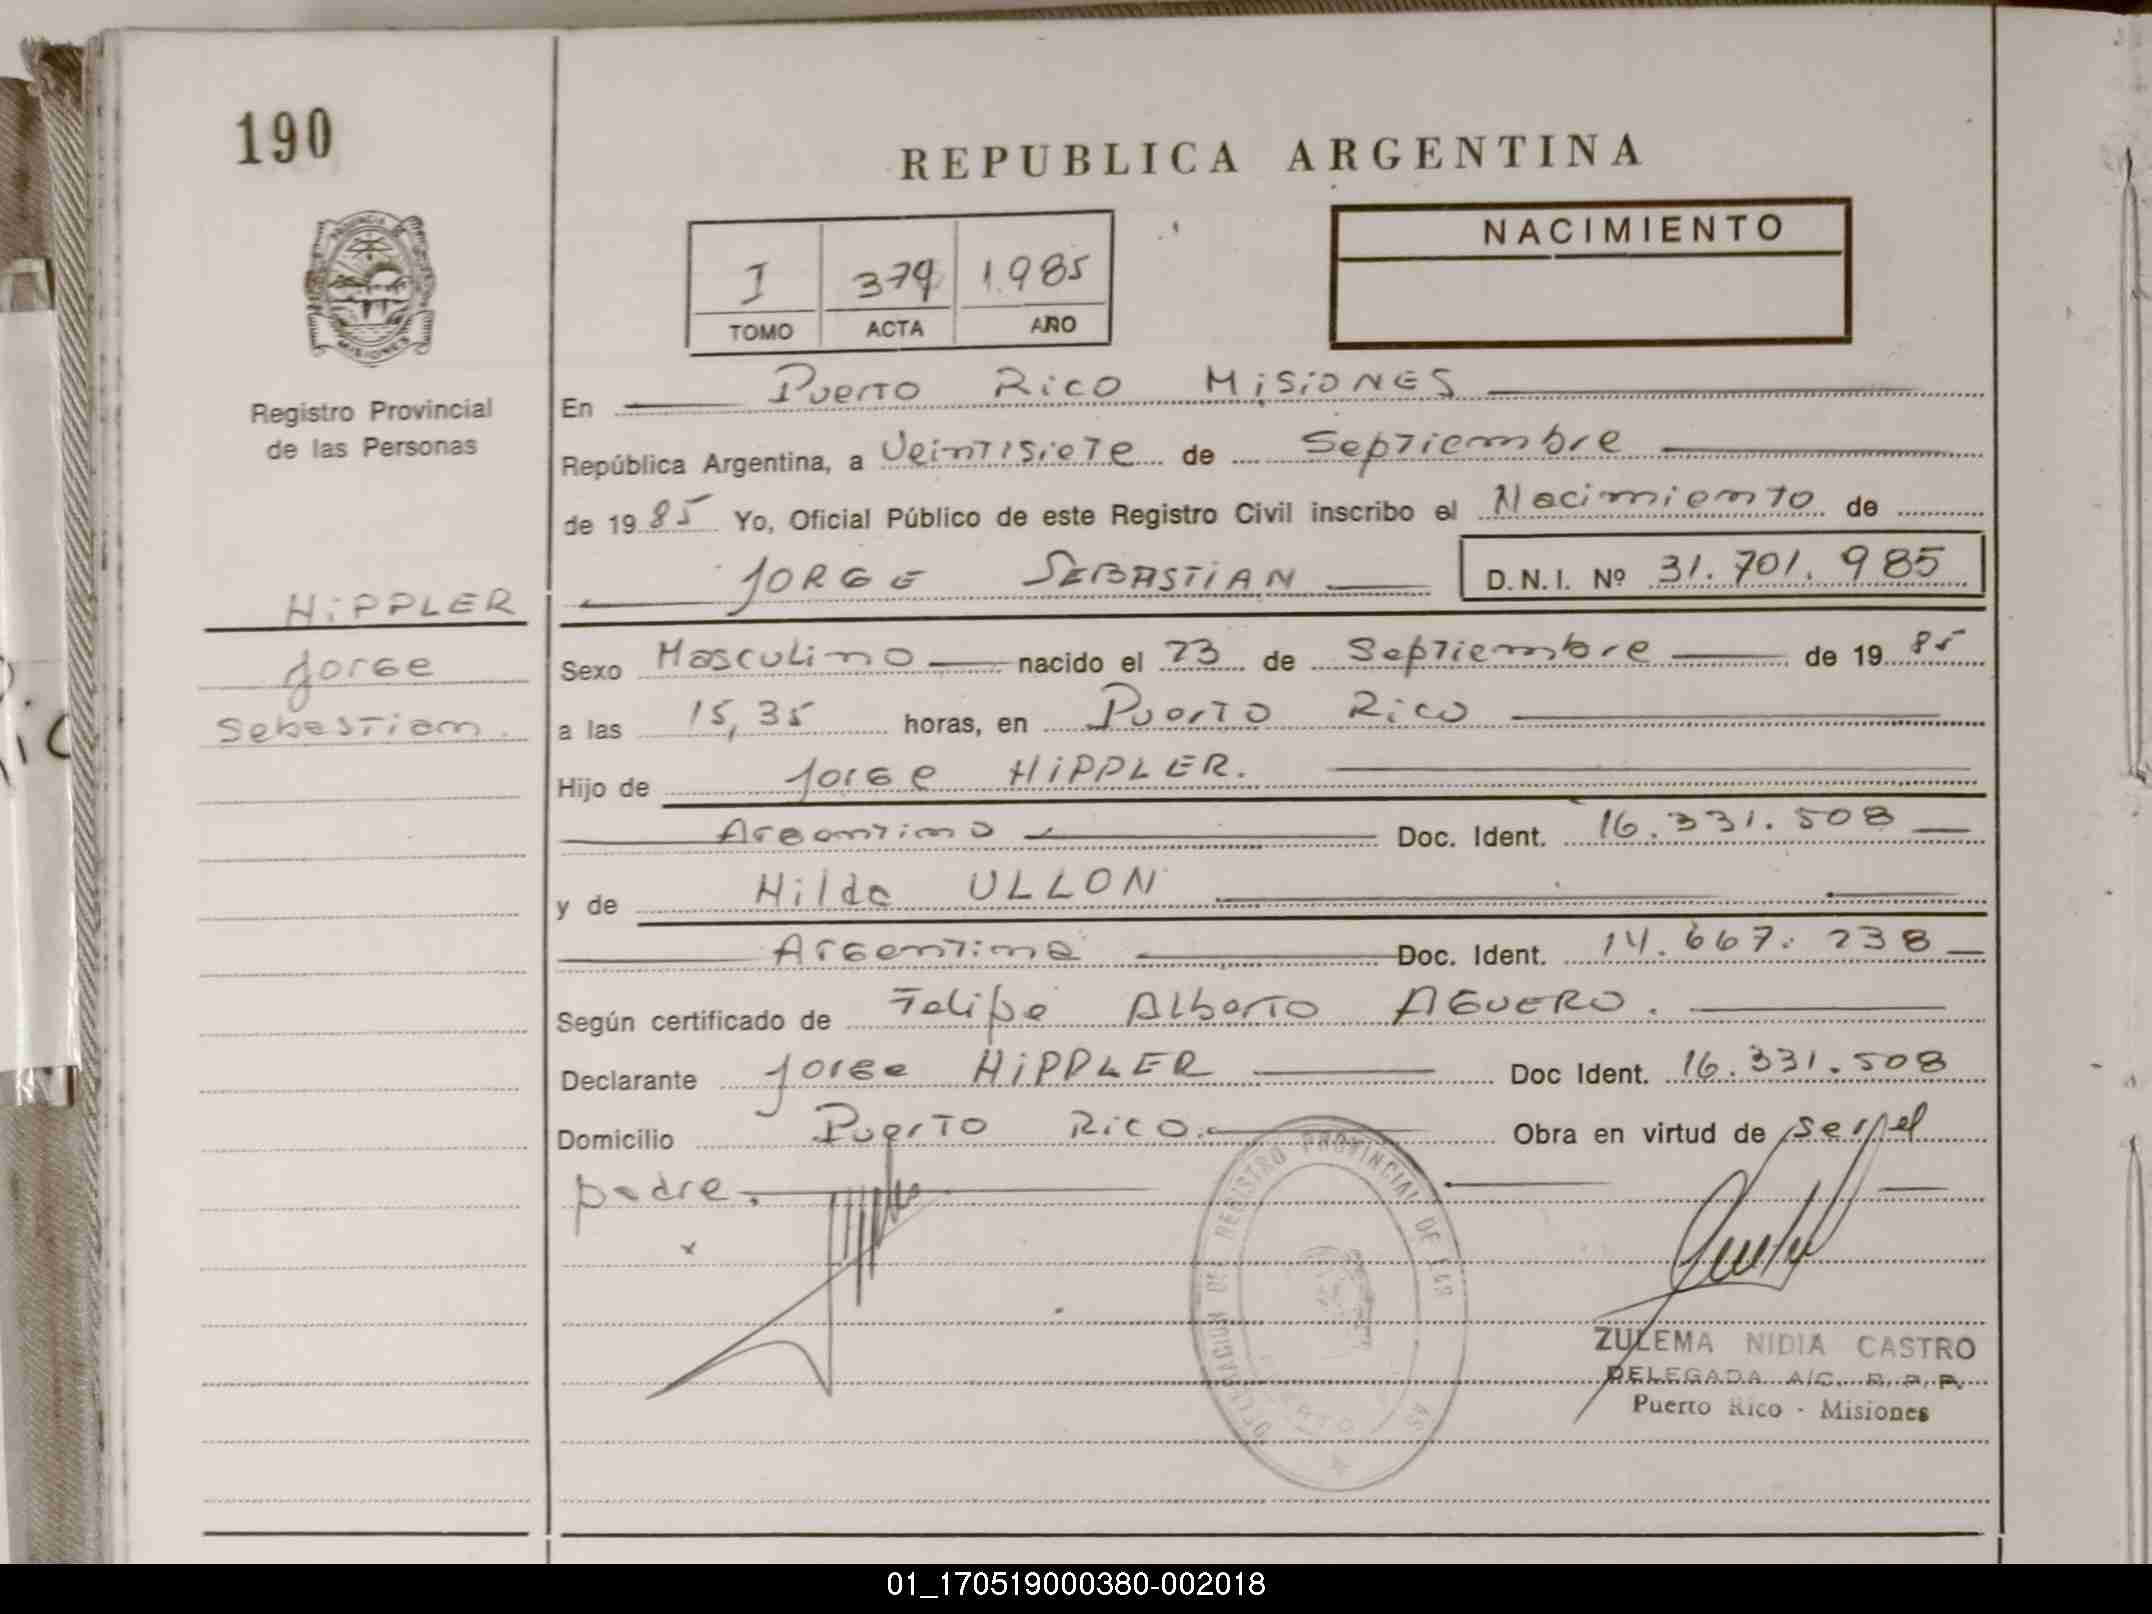 190
REPUBLICA ARGENTINA
PROVINCIA DE
MISIONES
Registro Provincial
de las Personas
I 379 1.985
TOMO ACTA AÑO
NACIMIENTO
En Puerto Rico Misiones
República Argentina, a Veintisiete de Septiembre
de 1985 Yo, Oficial Público de este Registro Civil inscribo el Nacimiento de
JORGE SEBASTIAN D.N.I. Nº 31.701.985
HIPPLER
Jorge
Sebastian.
Sexo Masculino nacido el 23 de Septiembre de 1985
a las 15,35 horas, en Puerto Rico
Hijo de Jorge HIPPLER.
Argentino Doc. Ident. 16.331.508
y de Hilda ULLON
Argentina Doc. Ident. 14.667.238
Según certificado de Felipe Alberto AGUERO.
Declarante Jorge HIPPLER Doc Ident. 16.331.508
Domicilio Puerto Rico. Obra en virtud de ser el
padre.
x
DELEGACION DEL REGISTRO PROVINCIAL DE LAS
ZULEMA NIDIA CASTRO
DELEGADA A/C. R. P. P.
Puerto Rico - Misiones
01_170519000380-002018